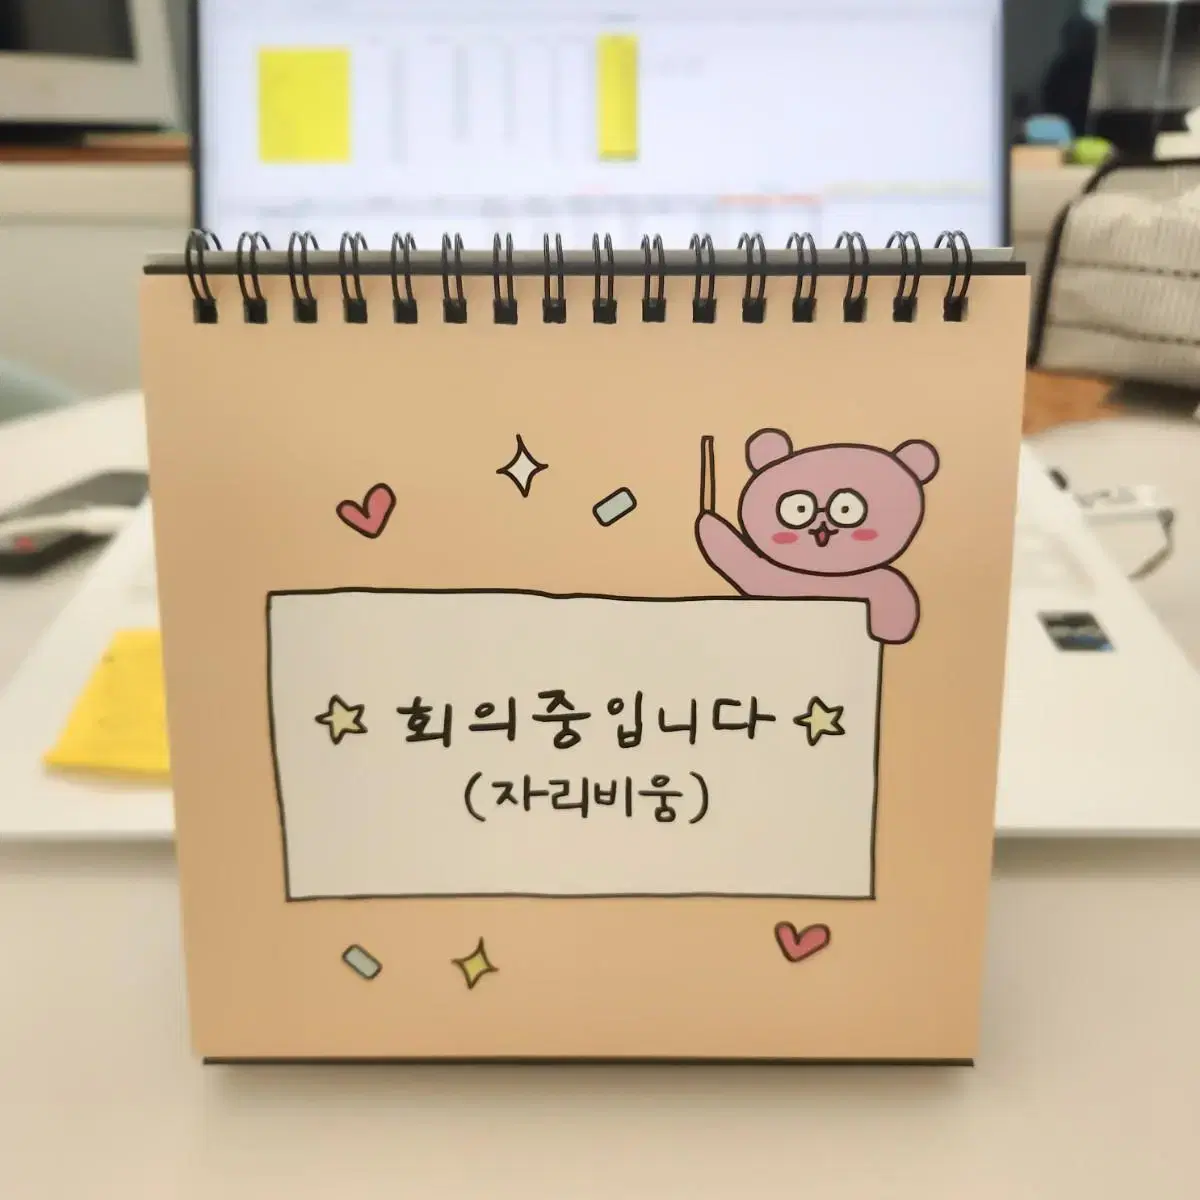 회의중입니다
(자리비움)